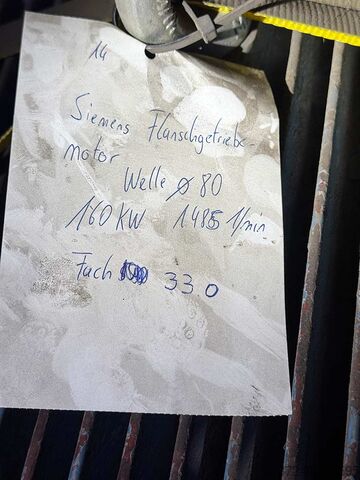 14
Siemens Flanschgetriebe-
motor
Welle ⌀ 80
160 KW 1485 1/min
Fach 330